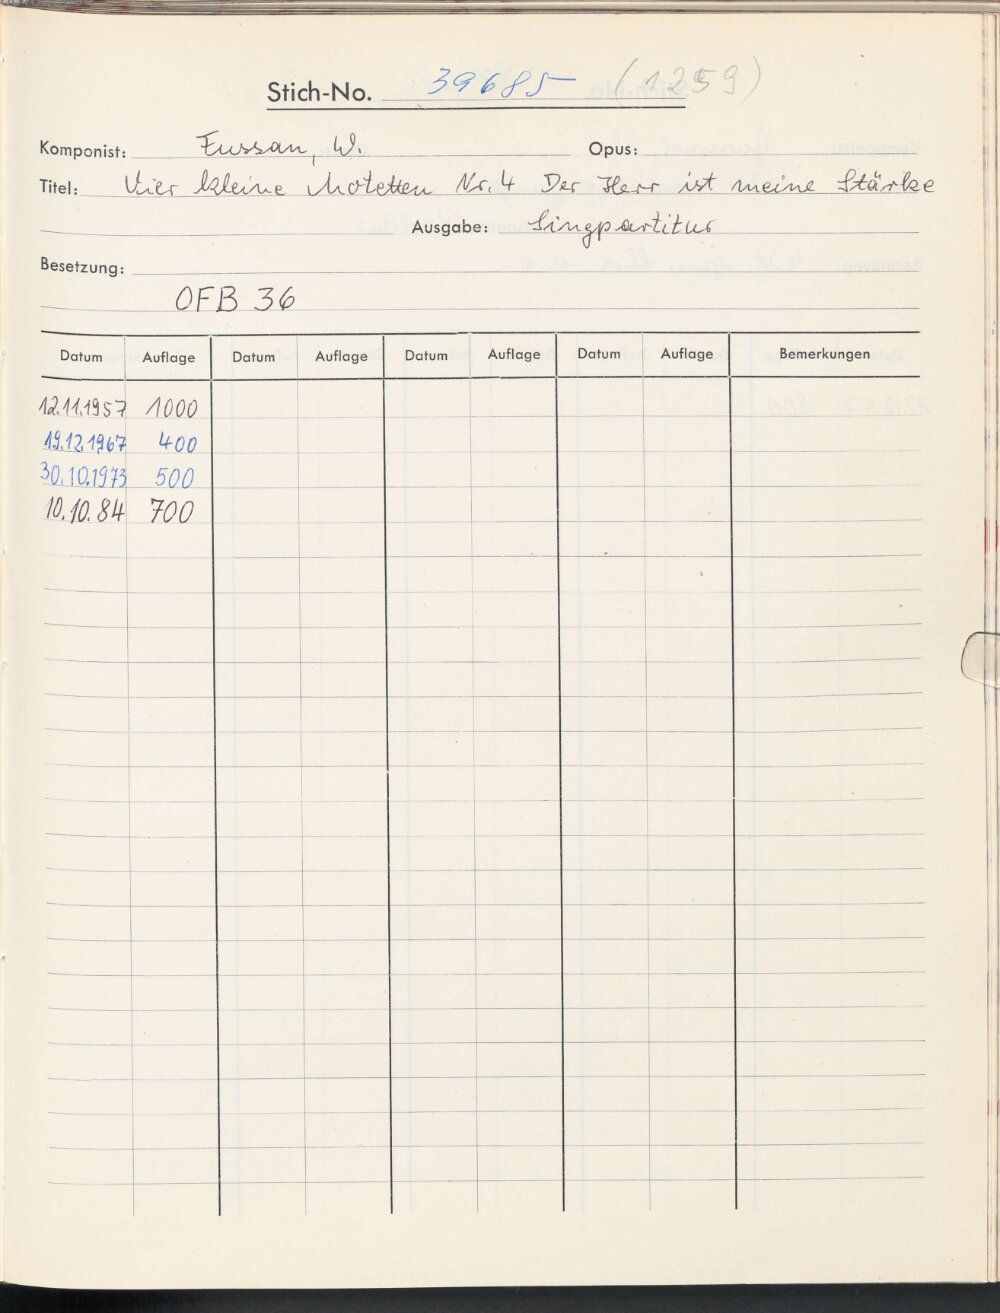 Stich-No. 39685 (1259)
Komponist: Fussan, W. Opus:
Titel: Vier kleine Motetten Nr. 4 Der Herr ist meine Stärke
Ausgabe: Singpartitur
Besetzung:
OFB 36
Datum Auflage Datum Auflage Datum Auflage Datum Auflage Bemerkungen
12.11.1957 1000
19.12.1967 400
30.10.1973 500
10.10.84 700